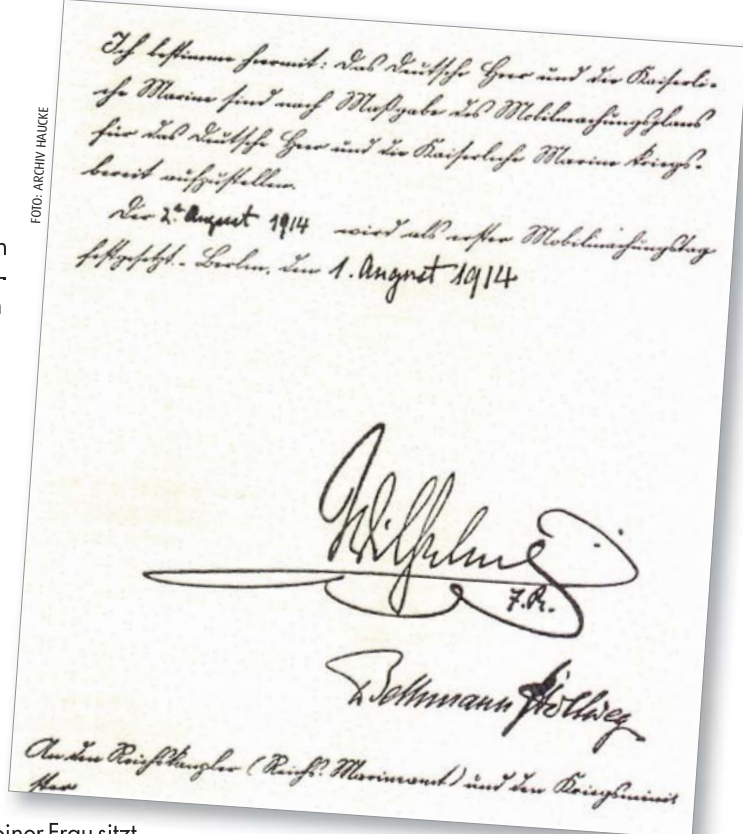 FOTO: ARCHIV HAUCKE
Ich bestimme hiermit: Das Deutsche Heer und die Kaiserli-
che Marine sind nach Maßgabe des Mobilmachungsplans
für das Deutsche Heer und die Kaiserliche Marine kriegs-
bereit aufzustellen.
Der 2te August 1914 wird als erster Mobilmachungstag
festgesetzt. - Berlin, den 1. August 1914
Wilhelm
I.R.
Bethmann Hollweg
An den Reichskanzler (Reichs-Marineamt) und den Kriegsminis
ter
einer Frau sitzt